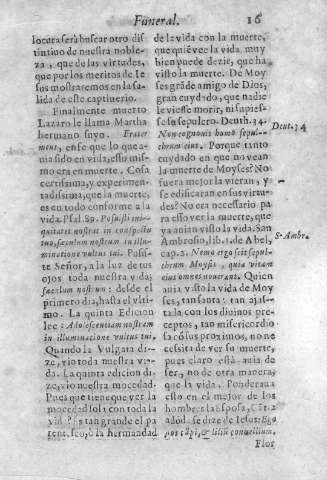 Funeral. 16
locura serà buscar otro dis
tintiuo de nuestra noble-
za, que de las virtudes,
que por los meritos de Ie
sus mostraremos en la sa-
lida de este captiuerio.
Finalmente muerto
Lazaro le llama Martha
hermano suyo. Frater
meus, en fee que lo que a-
uia sido en vida, esso mis-
mo era en muerte. Cosa
certissima, y experimen-
tadissima, que la muerte,
es en todo conforme a la
vida. Psal. 89. Posuisti ini-
quitates nostras in conspectu
tuo, sæculum nostrum in illu-
minatione vultus tui. Posis-
te Señor, a la luz de tus
ojos toda nuestra vida,
sæculum nostrum: desde el
primero dia, hasta el vlti-
mo. La quinta Edicion
lee: Adolescentiam nostram
in illuminatione vultus tui.
Quando la Vulgata di-
ze, vio toda nuestra vi-
da. La quinta edicion di-
ze, vio nuestra mocedad.
Pues que tiene que ver la
mocedad sola con toda la
vida? Es tan grande el pa
rentesco, ò la hermandad
de la vida con la muerte,
que quiẽ vee la vida, muy
bien puede dezir, que ha
visto la muerte. De Moy
ses grãde amigo de Dios,
gran cuydado, que nadie
le viesse morir, ni supies-
se su sepulcro. Deuth. 34.
Non cognouit homo sepul-
chrum eius. Porque tanto
cuydado en que no vean
la muerte de Moyses? No
fuera mejor la vieran, y
se edificaran en sus virtu-
des? No era necessario pa
ra esso ver la muerte, que
ya auian visto la vida. San
Ambrosio, lib. 1. de Abel,
cap. 2. Nemo ergo scit sepul-
chrum Moysis, quia vitam
eius omnes nouerant. Quien
auia visto la vida de Moy
ses, tan santa: tan ajus-
tada con los diuinos pre-
ceptos, tan misericordio
sa cõ sus proximos, no ne
cessita de ver su muerte,
pues claro està auia de
ser, no de otra manera,
que la vida. Ponderaua
esto en el mejor de los
hombres la Esposa,
dõd se dize de Iesus: Ego
flos cãpi, & lilium conuallium.
Flor
Deut. 34
S. Ambr.